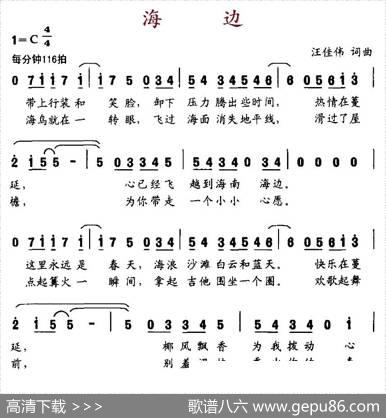 海 边
1=C 4/4
每分钟116拍
汪佳伟 词曲
0 7 1 1 7 1 1 7 5 0 3 4 5 4 3 4 5 3 4 5 4 6 0 5 6 1 3
带上行装和 笑脸, 卸下 压力 腾出些时间, 热情在蔓
海鸟就在一 转眼, 飞过 海面 消失地平线, 滑过了屋
2 1 5 5 5 - 5 0 3 3 4 5 5 4 3 4 0 0 0 0 0
延, 心已经飞 越到海南 海边。
檐, 为你带走 一个小小 心愿。
0 7 1 1 7 1 1 7 5 0 3 4 5 4 3 4 5 3 4 5 4 6 0 5 6 1 3
这里永远是 春天, 海浪 沙滩 白云和蓝天。 快乐在蔓
点起篝火一 瞬间, 拿起 吉他 围坐一个圈。 欢歌起舞
2 1 5 5 5 - 5 0 3 3 4 5 5 4 3 4
延, 椰风飘香 为我拨动 心
前, 别羞涩
高清下载 >>> 歌谱八六 www.gepu86.com